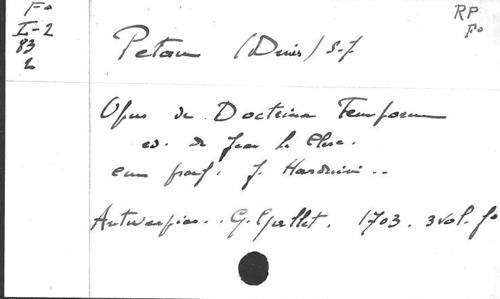 Fº
I-2
83
2
RP
Fº
Petau (Denis) S.J.
Opus de Doctrina Temporum
ed. de Jean le Clerc.
cum praef. J. Harduini..
Antwerpiae.. G. Gallet. 1703. 3 vol. fº